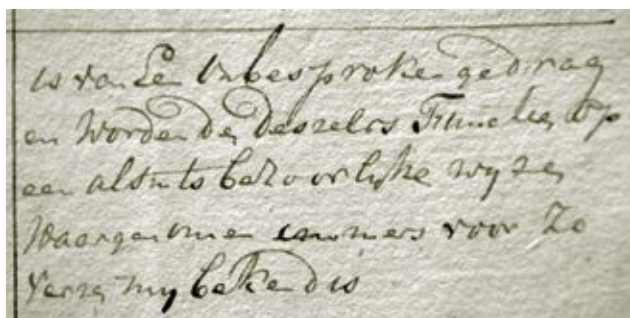 is van Een Onbesproken gedrag
en worden de Deszelvs Functien op
een alsints behoorlijke wyze
Waargenomen immers voor Zo
Verre my beKend is